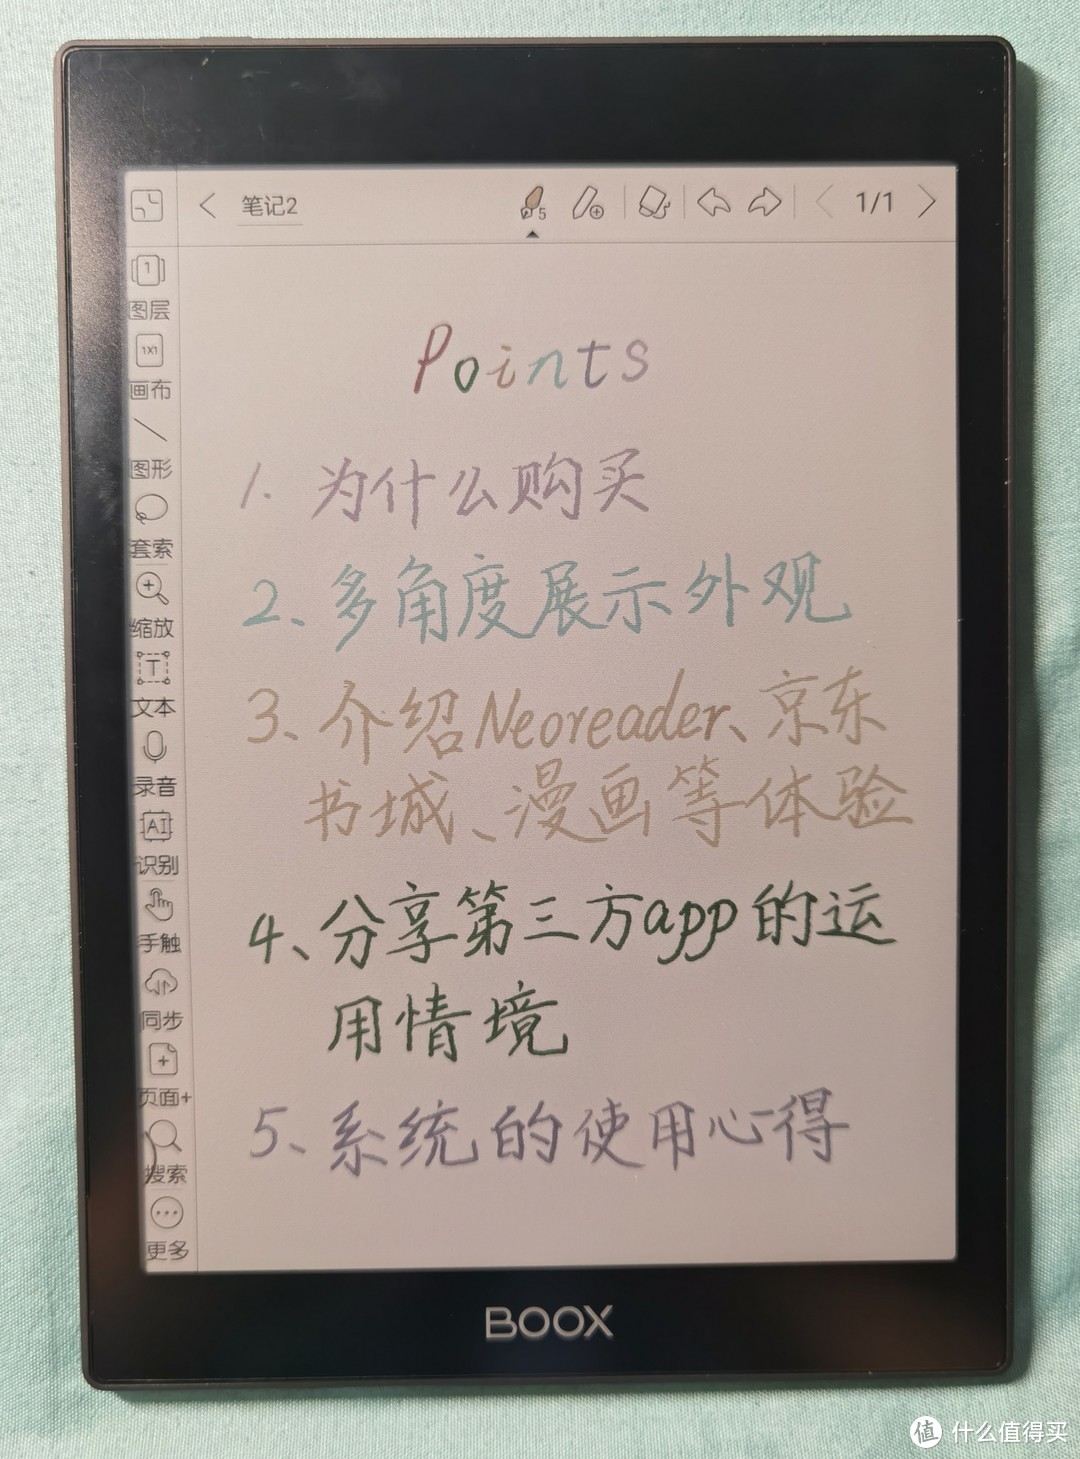 笔记2
5
1/1
1
图层
1X1
画布
图形
套索
缩放
T
文本
录音
AI
识别
手触
同步
页面+
搜索
更多
Points
1. 为什么购买
2、多角度展示外观
3、介绍Neoreader、京东
书城、漫画等体验
4、分享第三方app的运
用情境
5、系统的使用心得
BOOX
值 什么值得买